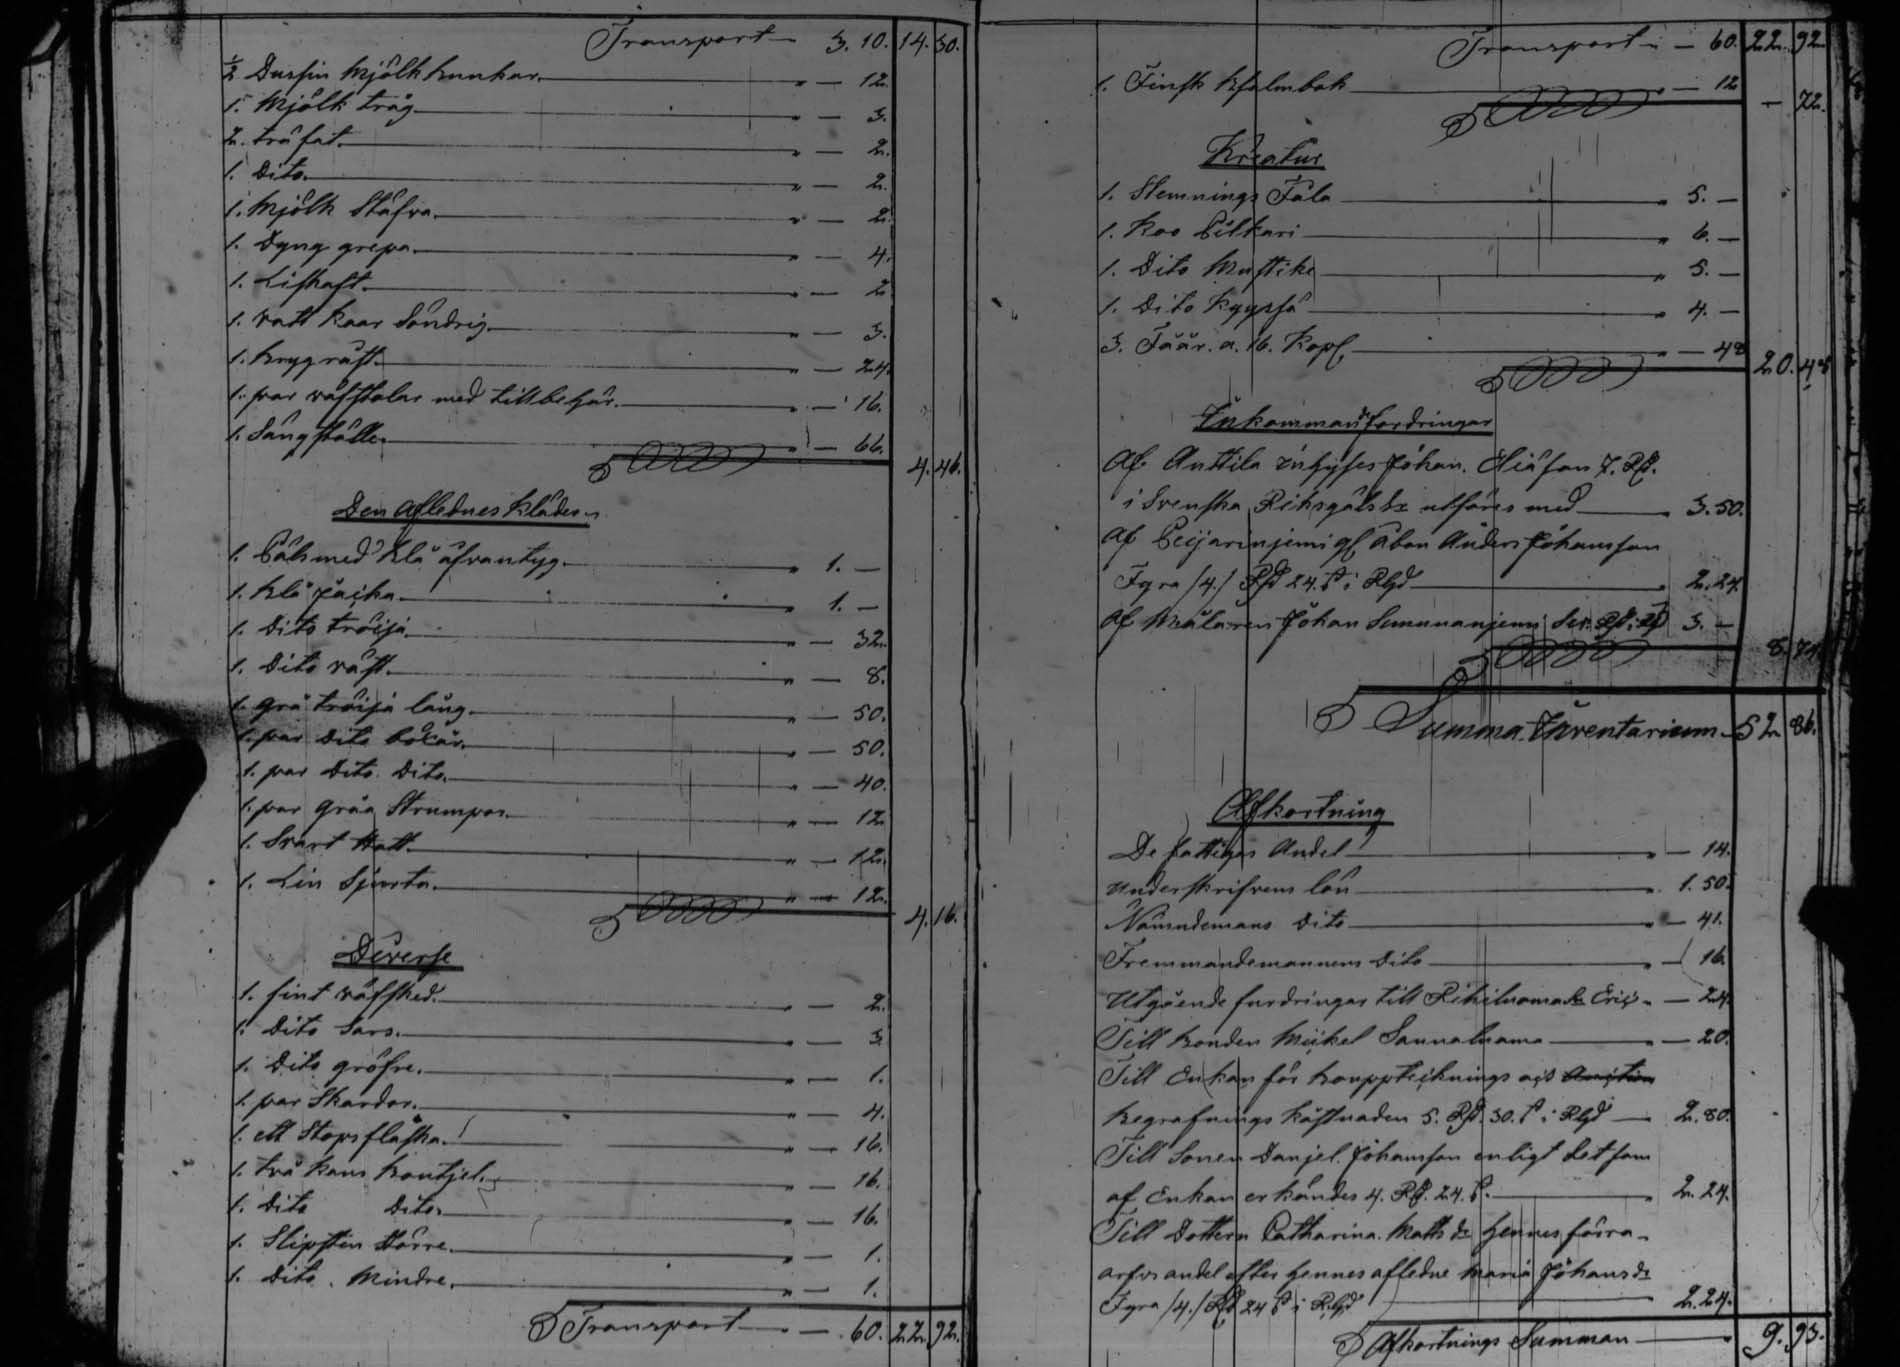 Transport — 3. 10. 14. 30.
1/2 Dussin Mjölk bunkar. " — 12.
1. Mjölk tråg. " — 3.
2. träfat. " — 2.
1. Dito. " — 2.
1. Mjölk Stäfva. " — 2.
1. Dyng grepa. " — 4.
1. " — 2.
1. Vatt kaar Söndrig. " — 3.
1. " — 24.
1. par väfstolar med tillbehör. " — 16.
1. Sängställe. " — 66.
4. 46.
Den Aflednes Kläder
1. Päls med Klä åfvantyg. " 1. —
1. Klä Jacka. " 1. —
1. Dito tröija. " — 32.
1. Dito väst. " — 8.
1. grå tröija lång. " — 50.
1. par Dito böxår. " — 50.
1. par Dito. Dito. " — 40.
1. par gråa Strumpor. " — 12
1. Svart Hatt. " — 12.
1. Lin Sjorta. " — 12.
4. 16.
Diverse
1. fint väfsked. " — 2.
1. Dito Dito. " — 3
1. Dito gröfre. " — 1.
1. par Skardor. " — 4.
1. ett Stops flaska. " — 16.
1. två kans " — 16.
1. Dito Dito. " — 16.
1. Slipsten Större. " — 1.
1. Dito. Mindre. " — 1.
Transport — 60. 22. 92.
Transport — 60. 22. 92
1. Finsk Psalmbok " — 12
— 72.
Kreatur
1. Stemnings Fåla " 5. —
1. Koo Pilkari " 6. —
1. Dito Mustike " 5. —
1. Dito Kyyssä " 4. —
3. Fåår. a. 16. Kop. " — 48
20. 48
Inkommande fordringar
Af Anttila inhyses Johan. Eliæson 7. Rd.
i Svenska Riksgäls utföres med 3. 50.
Af Anders Johansson
Fyra /4./ Rd 24. i Rgd 2. 24.
Af Målaren Johan 3. —
8. 74.
Summa Inventarium 52 86.
Afkortning
De fattigas Andel " — 14.
Underskrifvens lön " 1. 50.
Nämndemans Dito " — 41.
Fremmandemannens Dito " — 16.
Utgående fordringar till Eric — 24.
Till bonden Mickel Saunaluoma — 20.
Till Enkan för bouppteknings och Auction
begrafnings kostnaden 5. Rd. 30. i Rgd — 2. 80.
Till Sonen Danjel. Johansson enligt det som
af Enkan erkändes 4. Rd. 24. " 2. 24.
Till Dottern Catharina. Matts dr hennes förra
arfvs andel efter hennes afledne Maria Johans dr
Fyra /4./ Rd 24 i Rgd 2. 24.
Afkortnings Summan 9. 93.